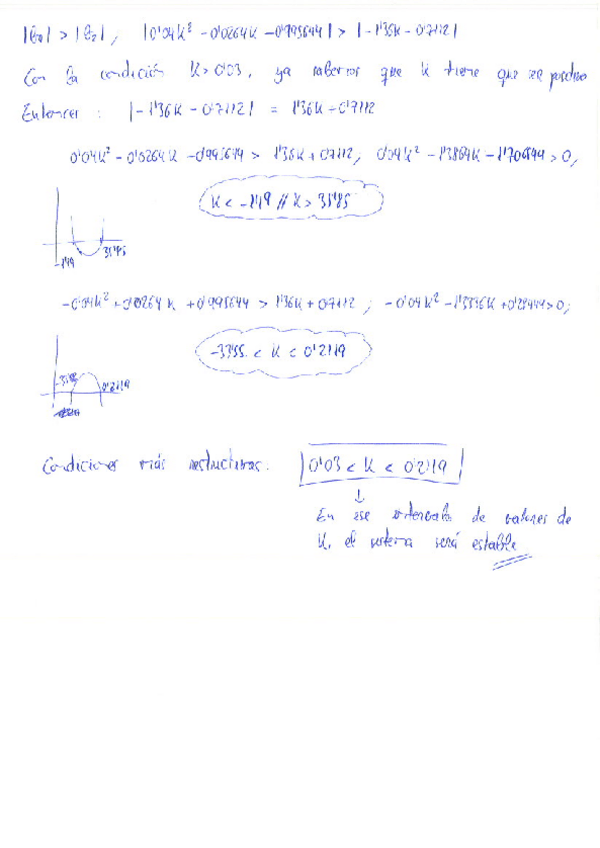 |b₀| > |b₂|, |0'04K² - 0'0264K - 0'995644| > |-1'36K - 0'7112|
Con la condición K > 0'03, ya sabemos que K tiene que ser positivo
Entonces: |-1'36K - 0'7112| = 1'36K + 0'7112
0'04K² - 0'0264K - 0'995644 > 1'36K + 0'7112, 0'04K² - 1'3864K - 1'706844 > 0,
K < -1'19 // K > 35'85
-1'19 35'85
-0'04K² + 0'0264K + 0'995644 > 1'36K + 0'7112; -0'04K² - 1'3336K + 0'28444 > 0;
-33'55 < K < 0'2119
-33'55 0'2119
Condiciones más restrictivas: 0'03 < K < 0'2119
↓
En ese intervalo de valores de
K, el sistema será estable